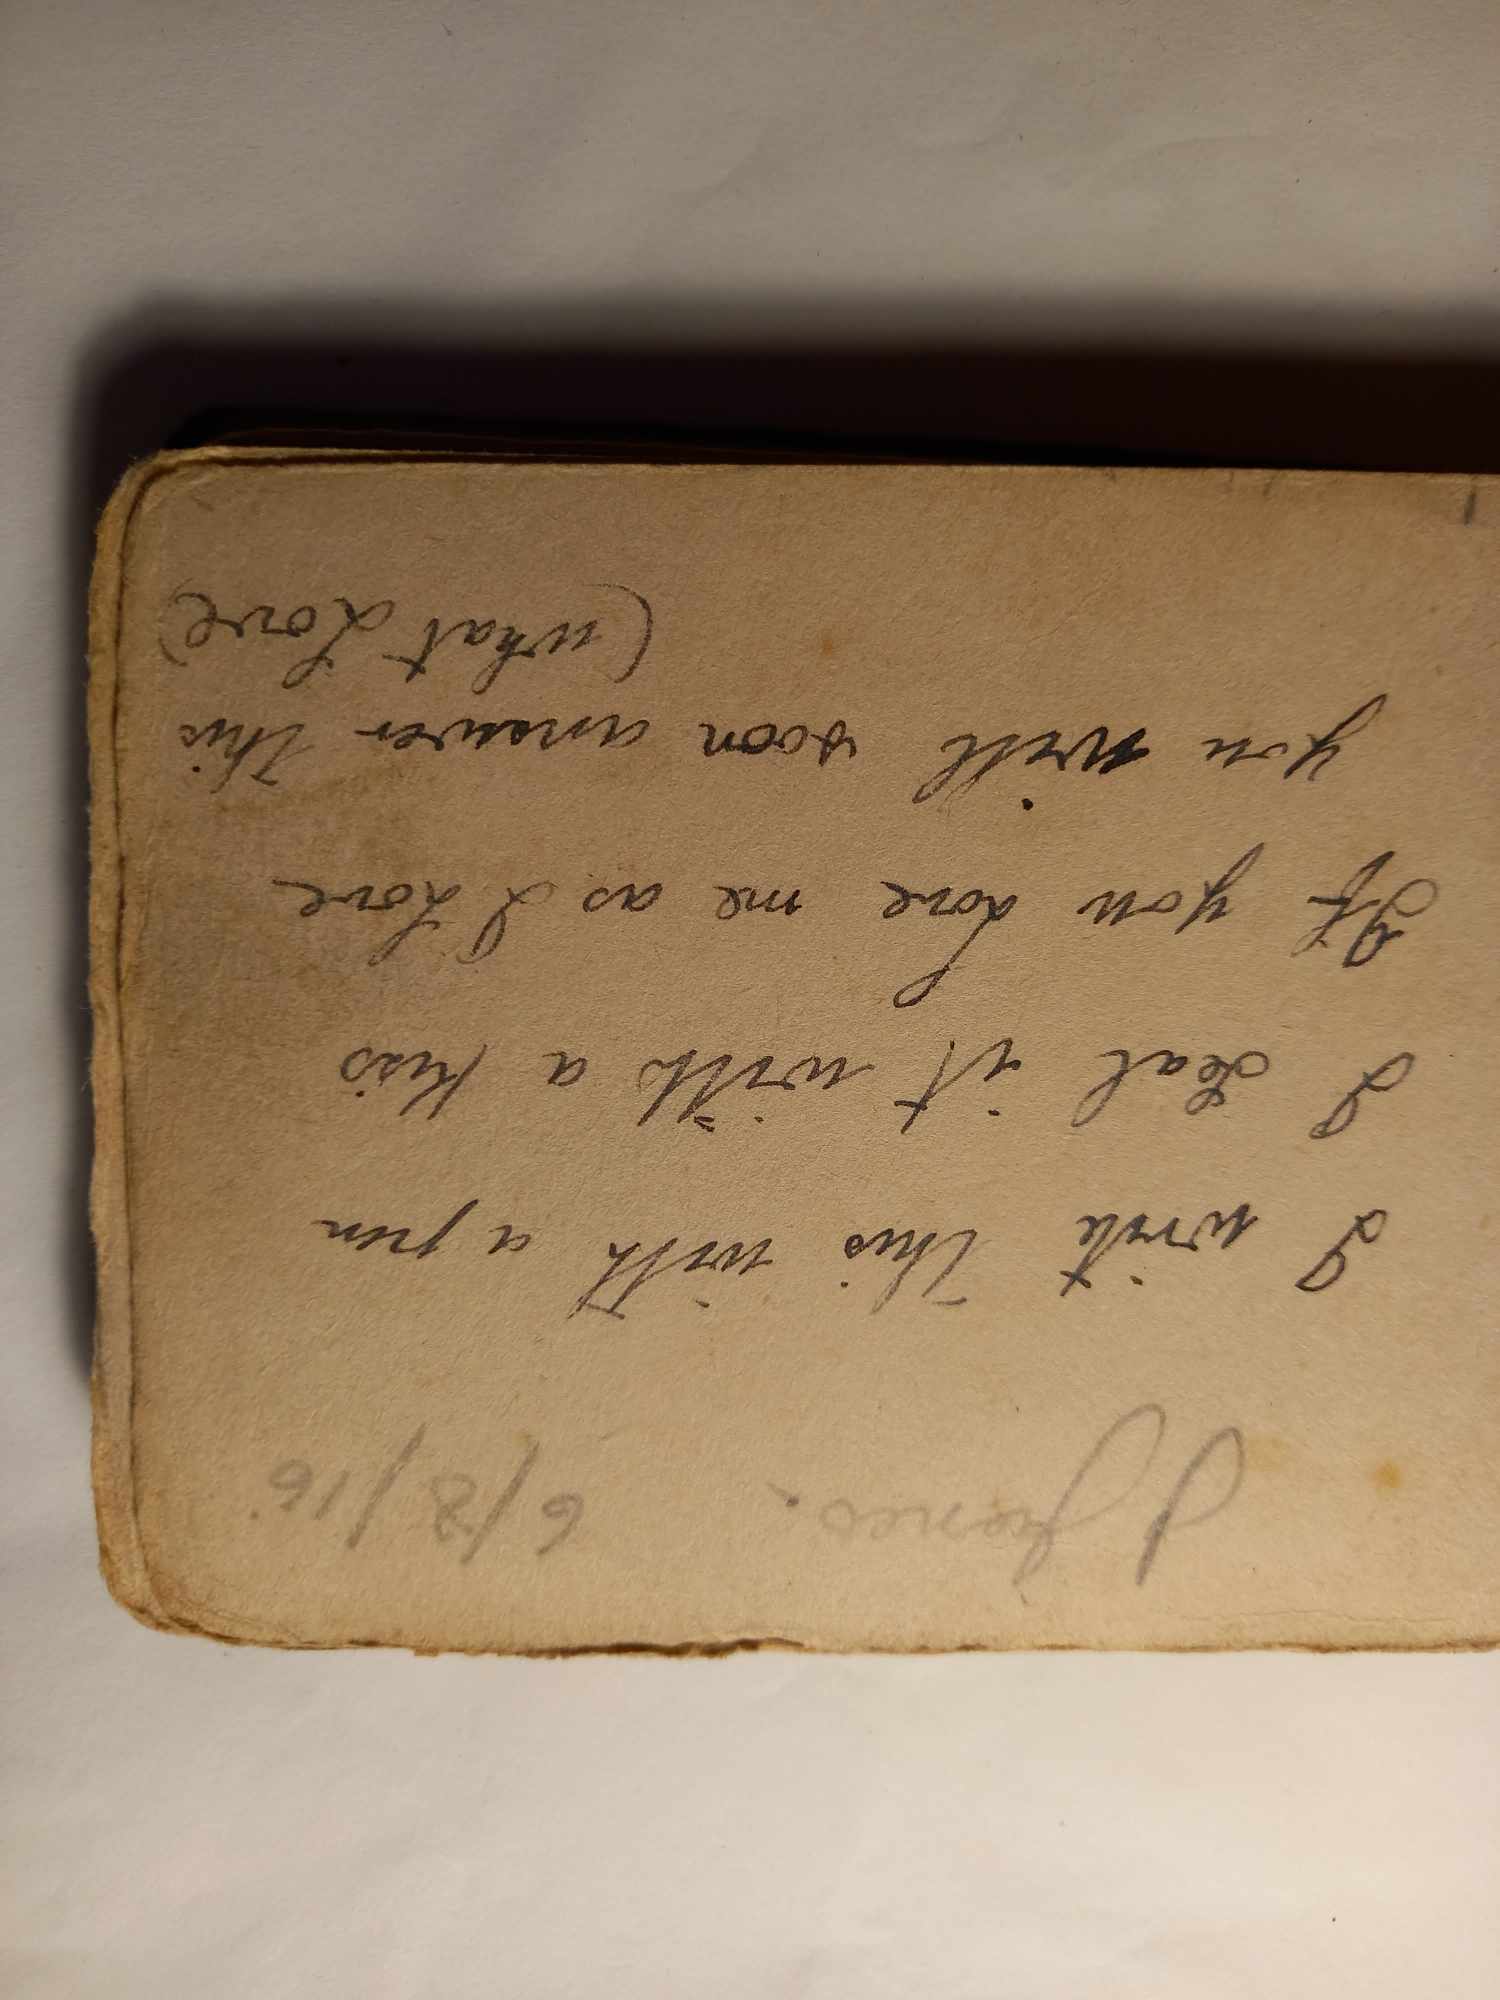 J Jones. 6/8/16.
I write this with a pen
I seal it with a kiss
If you Love me as I Love
you will soon answer this
(what Love)